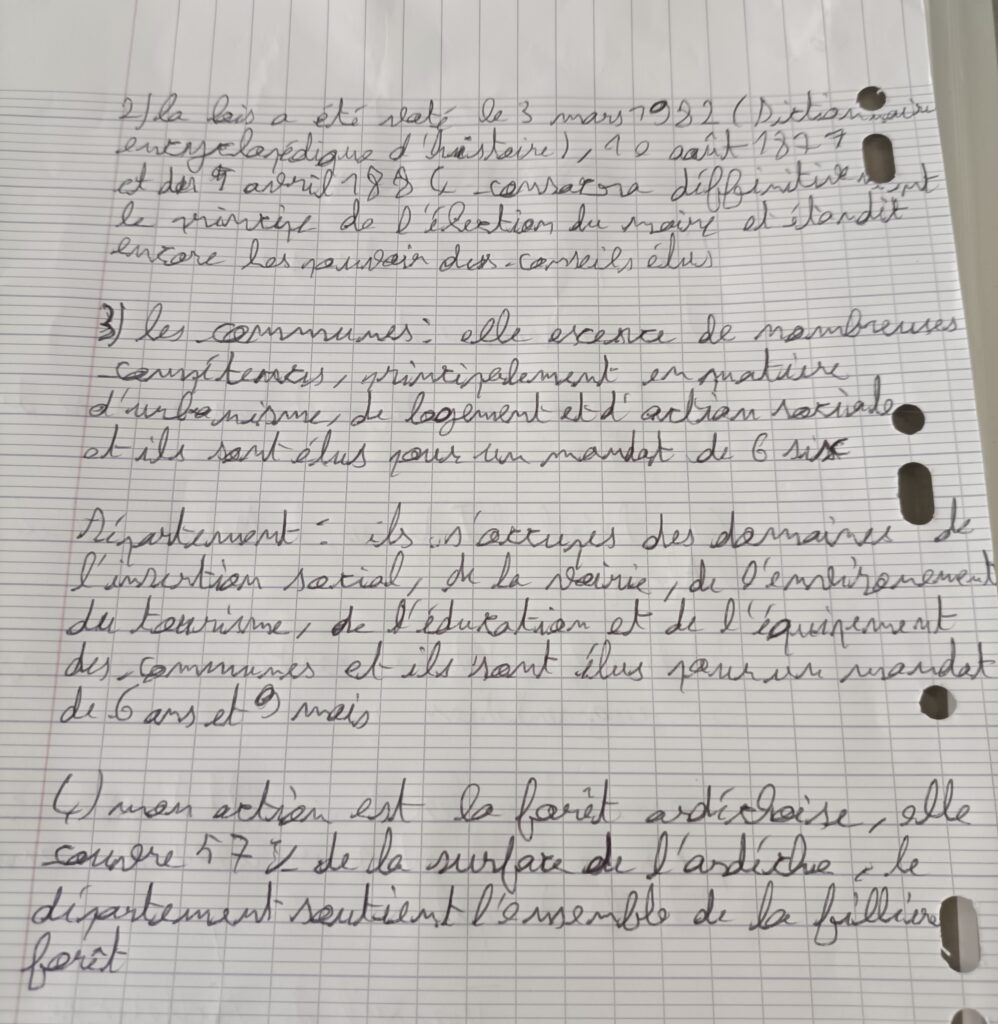 2) la lois a été voté le 3 mars 1982 (Dictionnaire
encyclopédique d'histoire), 10 août 1877
et des 5 avril 1884 consacra diffinitivement
le principe de l'élection du maire et étandit
encore les pouvoir des conseils élus
3) les communes : elle exerce de nombreuses
compétences, principalement en matière
d'urbanisme, de logement et d'action sociale
et ils sont élus pour un mandat de 6 six
Département : ils s'occupes des domaines de
l'insertion social, de la voirie, de l'environement
du tourisme, de l'éducation et de l'équipement
des communes et ils sont élus pour un mandat
de 6 ans et 9 mois
4) mon action est la forêt ardéchoise, elle
couvre 57 % de la surface de l'ardèche, le
département soutient l'ensemble de la fillière
forêt